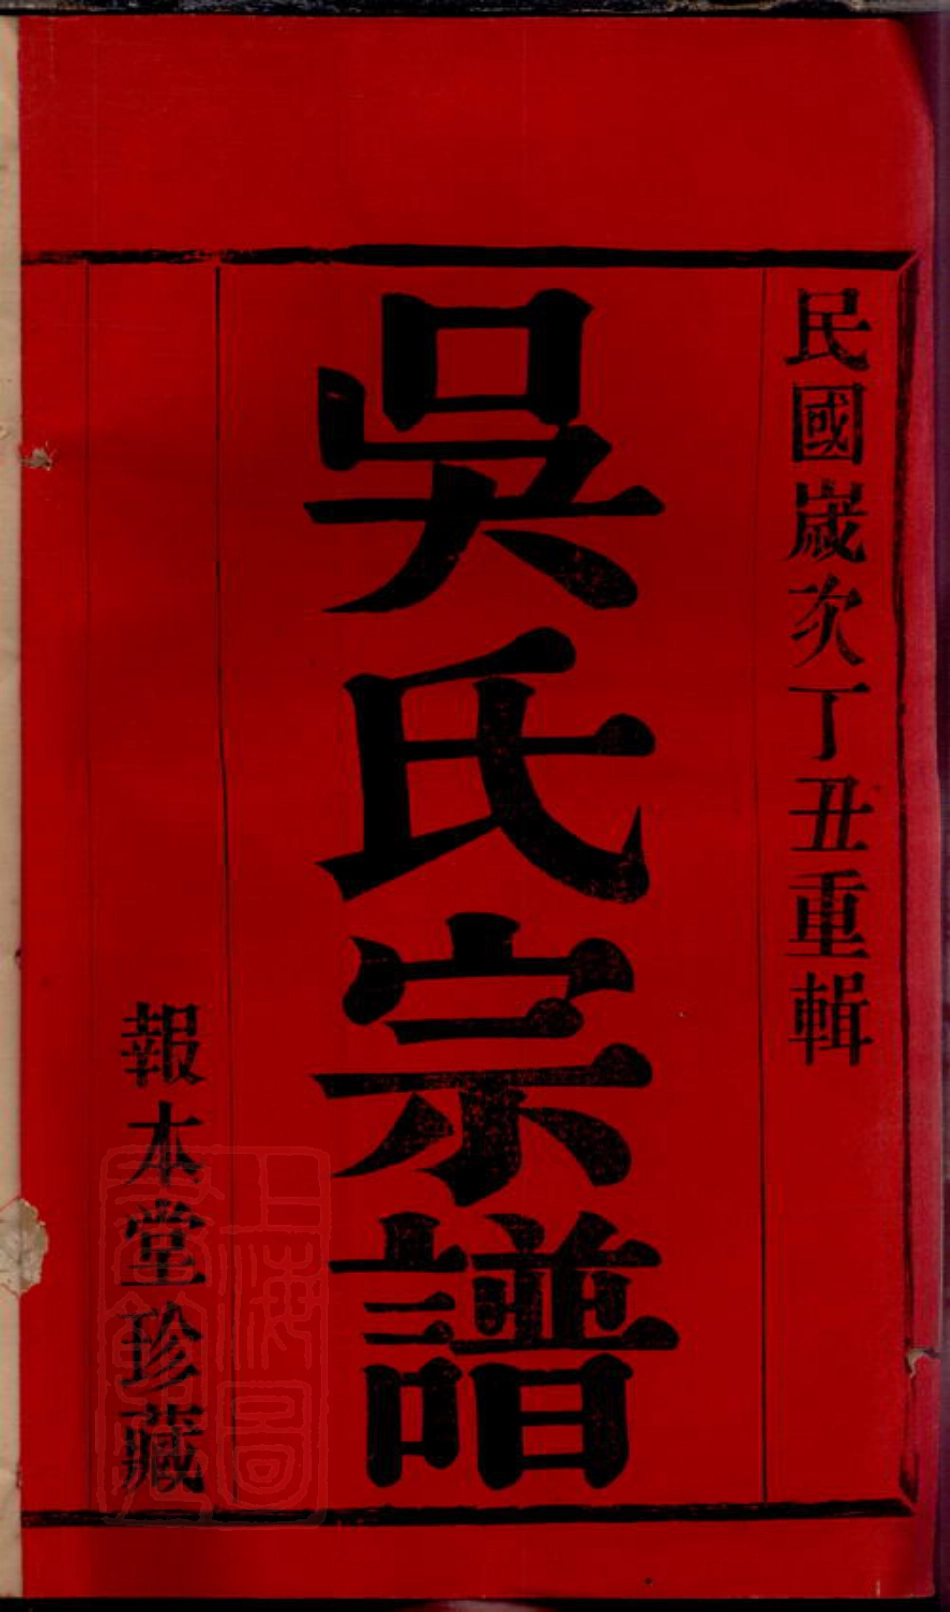 民國嵗次丁丑重輯
吳氏宗譜
報本堂珍藏
上海圖書館藏